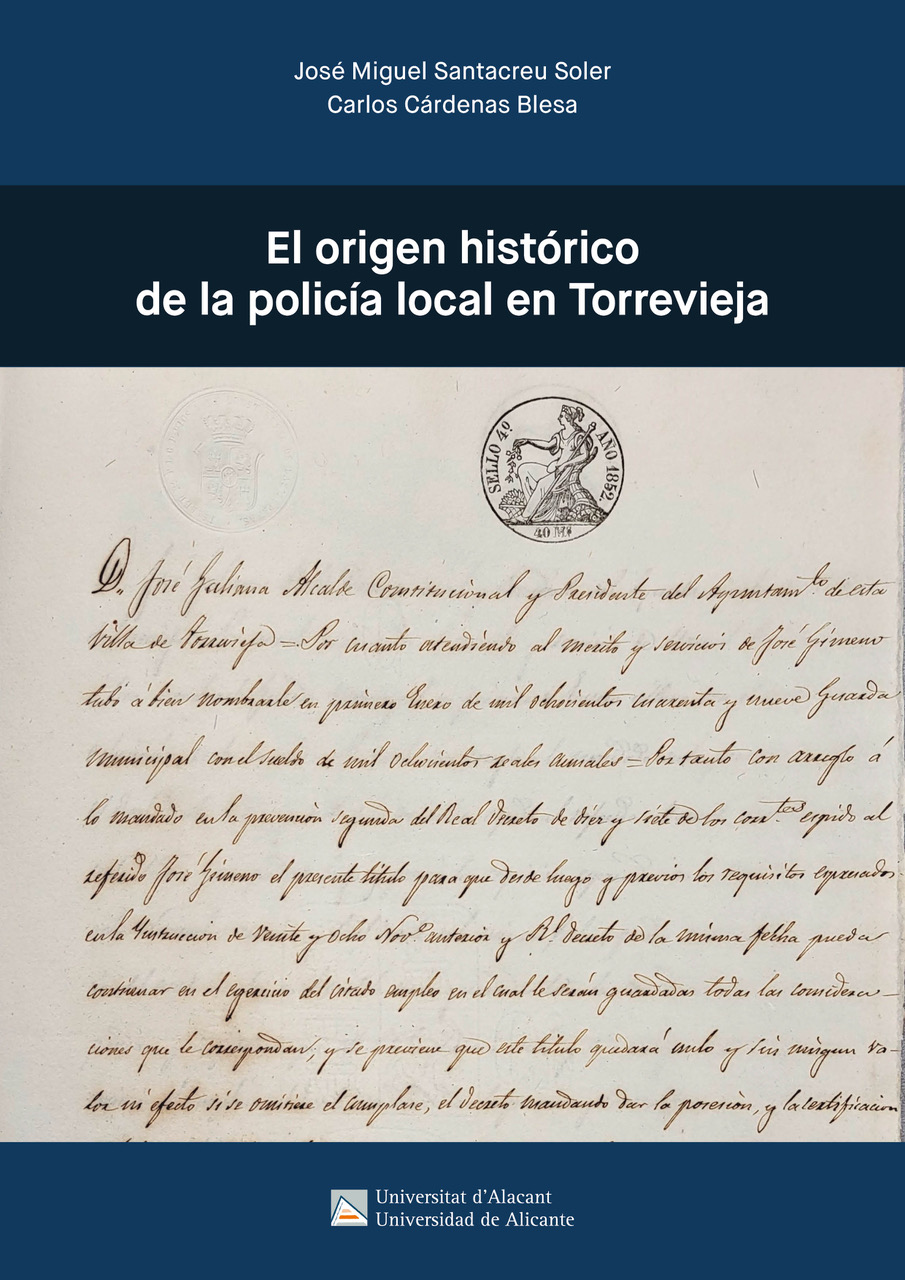 José Miguel Santacreu Soler
Carlos Cárdenas Blesa
El origen histórico
de la policía local en Torrevieja
SELLO 4º AÑO 1852
40 Ms
Dn. José Galiana Alcalde Constitucional y Presidente del Ayuntamto. de esta
Villa de Torrevieja = Por cuanto atendiendo al merito y servicios de José Gimeno
tubó á bien nombrarle en primero Enero de mil ochocientos cuarenta y nueve Guarda
municipal con el sueldo de mil ochocientos reales anuales = Por tanto con arreglo á
lo mandado en la prevención segunda del Real decreto de diez y siete de los corrtes. espido al
referido José Gimeno el presente titulo para que desde luego y previos los requisitos espresados
en la Instruccion de veinte y ocho Nove. anterior y Rl. decreto de la misma fecha pueda
continuar en el egercicio del citado empleo en el cual le serán guardadas todas las considera-
ciones que le correspondan; y se previene que este titulo quedará nulo y sin ningun va-
lor ni efecto si se omitiere el cumplase, el decreto mandando dar la posesion, y la certificacion
Universitat d'Alacant
Universidad de Alicante